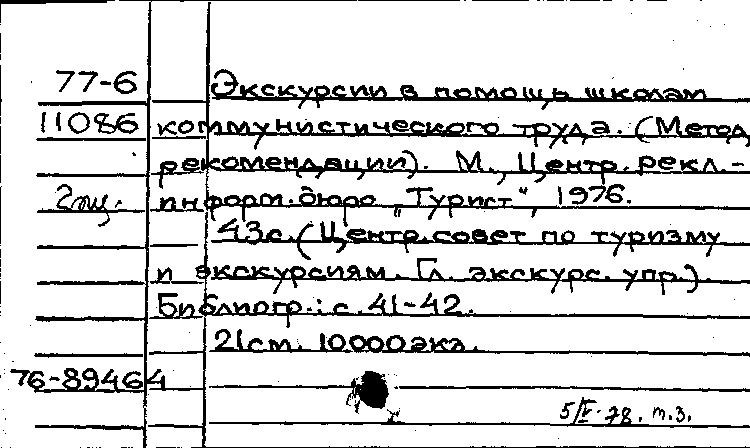 77-6 Экскурсии в помощь школам
11086 коммунистического труда. (Метод.
рекомендации). М., Центр. рекл.-
информ. бюро „Турист“, 1976.
43с. (Центр. совет по туризму
и экскурсиям. Гл. экскурс. упр.)
Библиогр.: с. 41-42.
21см. 10000экз.
76-89464
5/V-78. т.з.